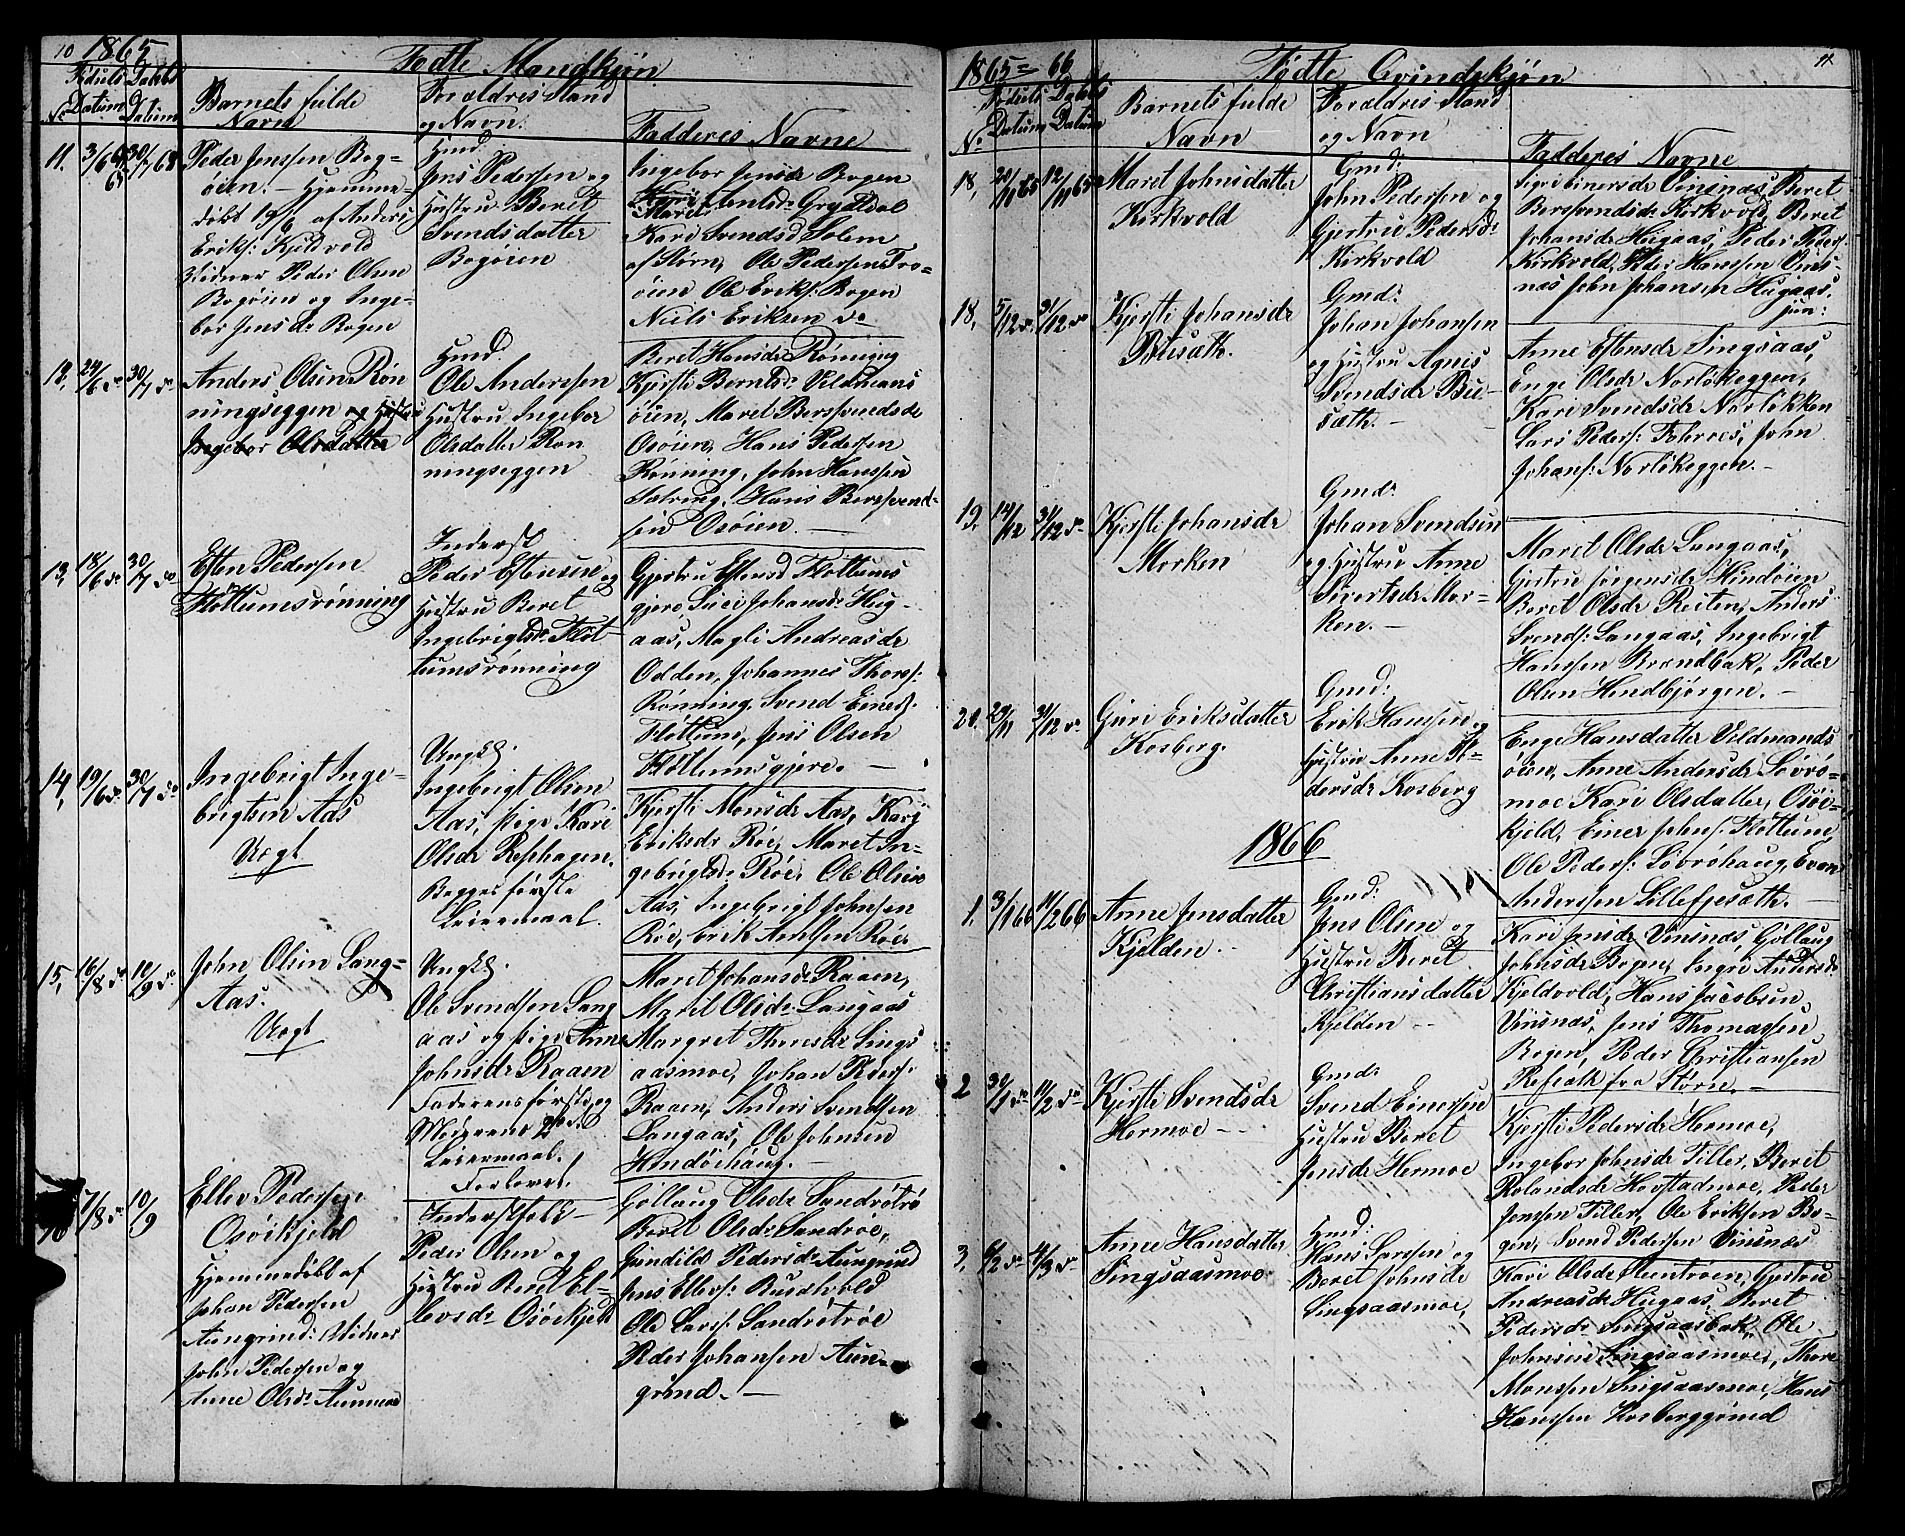 10 1865
Födte Mandkjøn
No
Födsels Datum
Daabs Datum
Barnets fulde
Navn
Foraldres Stand
og Navn.
Fadderes Navne
11. 3/6 65 30/7 65
Peder Jenssen Bog-
øien. - Hjemme-
døbt af Anders
Eriks: Kjelvold
Vidner Peder Olsen
Bogøien og Inge-
bor Jensdr Bogen
Gmd.
Jens Pedersen og
Hustru Beret
Svendsdatter
Bogøien
Ingebor Jensdr Bogen
Maret Arntsdr Grytdal
Kari Svendsd Solem
af Støren, Ole Pedersen Fro-
øien Ole Eriks: Bogen
Niels Eriksen do
12, 24/6 do 30/7 do
Anders Olsen Røn
ningseggen og Hustru
Ingebor Olsdatter
Gmd.
Ole Anderssen
Hustru Ingebor
Olsdatter Røn
ningseggen
Beret Hansdr Rönning
Kjersti Berntsdr Veldmans
øien, Maret Bersvendsdr
Osøien, Hans Pedersen
Rønning, John Hanssen
Sætring, Hans Bersvend-
sen Osøien. -
13, 18/6 do 30/7 do
Esten Pedersen
Fløttumsrønning
Inderst
Peder Estensen og
Hustru Beret
Ingebrigtsdr Fløt-
tumsrønning
Gjertru Estensd Fløttums
gjere Siri Johansdr Hug-
aas, Magli Andreasdr
Odden, Johannes Thors:
Rønning, Svend Einers:
Fløttum, Jens Olsen
Fløttumsgjere. -
14, 19/6 do 30/7 do
Ingebrigt Inge-
brigtsen Aas
Uægt
Ungk:
Ingebrigt Olsen
Aas, Pige Kari
Olsdr Refshagen.
Begges første
Leiermaal.
Kjersti Monsdr Aas, Kari
Eriksdr Röe, Maret In-
gebrigtsdr Röe, Ole Olsen
Aas, Ingebrigt Johnsen
Röe, Erik Arntsen Röe
15, 16/8 do 10/9 do
John Olsen Lang-
Aas.
Uægt
Ungk:
Ole Svendsen Lang
aas og Pige Anne
Johnsdr Raaen
Faderens første og
Moderens 2det
Leiermaal.
Forlovet.
Maret Johansdr Raaen,
Maret Olsdr Langaas
Margret Thoresdr Sings
aasmoe, Johan Peders:
Raaen, Anders Svendsen
Langaas, Ole Johnsen
Hindöhaug. -
16 7/8 do 10/9
Ellev Pedersen
Osöikjeld
Hjemmedøbt af
Johan Pedersen
Aungrind: Vidner
John Pedersen og
Anne Olsdr Aunmoe
Inderstfolk -
Peder Olsen og
Hustru Beret El-
levsdr Osöikjeld
Gollaug Olsdr Sandrötrö
Beret Olsdr Sandröe,
Gunhild Pedersdr Aungrind
Jens Ellevs: Busethvold
Ole Lars: Sandrötröe
Peder Johansen Aun-
grind. -
1865 = 66
Födte Qvindekjøn
11
No
Födsels Datum
Daabs Datum
Barnets fulde
Navn
Foraldres Stand
og Navn
Fadderes Navne
18, 20/10 65 12/11 65
Maret Johnsdatter
Kirkvold
Gmd:
John Pedersen og
Gjertru Pedersdr
Kirkvold
Sigri Einersdr Vinsnæs, Beret
Bersvendsdr Kirkvold, Beret
Johansdr Hugaas, Peder Peders:
Kirkvold, Peder Hanssen Vins-
næs John Johansen Hugaas.
jun:
18, 5/12 do 31/12 do
Kjersti Johansdr
Busæth.
Gmd:
Johan Johansen
og Hustru Agnis
Svendsdr Bu-
sæth. -
Anne Estensdr Singsaas,
Enge Olsdr Norløkeggen,
Kari Svendsdr Norløkken
Lars Peders: Fohrves, John
Johans: Norlökeggen. -
19, 14/12 31/12 do
Kjersti Johansdr
Morken
Gmd:
Johan Svendsen
og Hustru Anne
Sivertsdr Mor-
ken. -
Maret Olsdr Langaas,
Gjertru Jörgensdr Hindöien
Beret Olsdr Reiten, Anders
Svends: Langaas, Ingebrigt
Hanssen Brandbak, Peder
Olsen Hindbjørgen. -
20, 29/11 31/12 do
Guri Eriksdatter
Kosberg.
Gmd:
Erik Hanssen og
Hustru Anne An-
dersdr Kosberg
Enge Hansdatter Veldmands
øien, Anne Andersdr Lövrö-
moe Kari Olsdatter, Osöi-
kjeld, Einer Johns: Fløttum,
Ole Peders: Lövröhaug, Even
Anderssen Lillefjesæth. -
1866
1. 3/1 66 11/2 66
Anne Jensdatter
Kjelden -
Gmd:
Jens Olsen og
Hustru Beret
Christiansdatter
Kjelden -
Kari Jensdr Vinsnæs, Göllaug
Johnsdr Bogen, Ingri Andersdr
Kjeldvold, Hans Jacobsen
Vinsnæs, Jens Thomassen
Bogen, Peder Christiansen
Refsæth fra Störne. -
2 30/1 do 11/2 do
Kjersti Svendsdr
Hermoe -
Gmd:
Svend Einersen
Hustru Beret
Jensdr Hermoe
Kjersti Pedersdr Hermoe,
Ingebor Johnsdr Tiller, Beret
Rolandsdr Hovstadmoe, Peder
Jenssen Tiller, Ole Eriksen Bo-
gen, Svend Pedersen Vinsnæs
3, 6/2 do 4/3 do
Anne Hansdatter
Singsaasmoe
Gmd:
Hans Larssen og
Beret Johnsdr
Singsaasmoe,
Kari Olsdr Stentröen, Gjertru
Andreasdr Hugaas, Beret
Pedersdr Singsaasbak, Ole
Johnsen Singsaasmoe, Thore
Monssen Singsaasmoe, Hans
Hanssen Kosberggrind